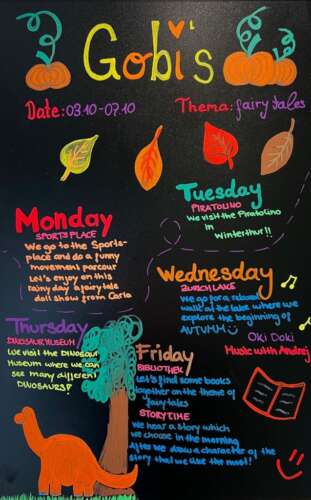 Gobi's
Date: 03.10-07.10
Thema: fairy tales
Tuesday
PIRATOLINO
We visit the Piratolino
in
Winterthur!!
Monday
SPORTS PLACE
We go to the Sports-
place and do a funny
movement parcour
Let's enjoy on this
rainy day a fairytale
doll show from Carla
Wednesday
ZURICH LAKE
We go for a relaxed
walk at the lake where we
explore the beginning of
AUTUMN
Oki Doki
Music with Andrej
Thursday
DINOSAUR MUSEUM
We visit the DINOSAUR
MUSEUM where we can
see many different
DINOSAURS!
Friday
BIBLIOTHEK
Let's find some books
together on the theme of
fairytales
STORYTIME
We hear a story which
we choose in the morning
After we draw a character of the
story that we like the most!